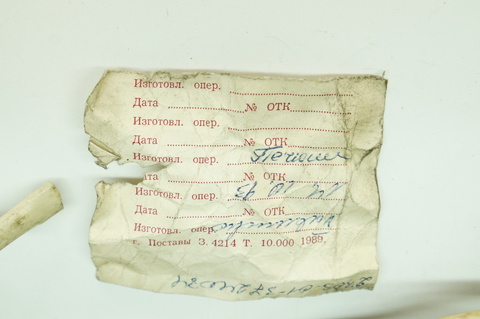 Изготовл. опер.
Дата № ОТК
Изготовл. опер.
Дата № ОТК
Изготовл. опер.
ата № ОТК
Изготовл. опер.
Дата № ОТК
Изготовл. опер.
г. Поставы З. 4214 Т. 10.000 1989.